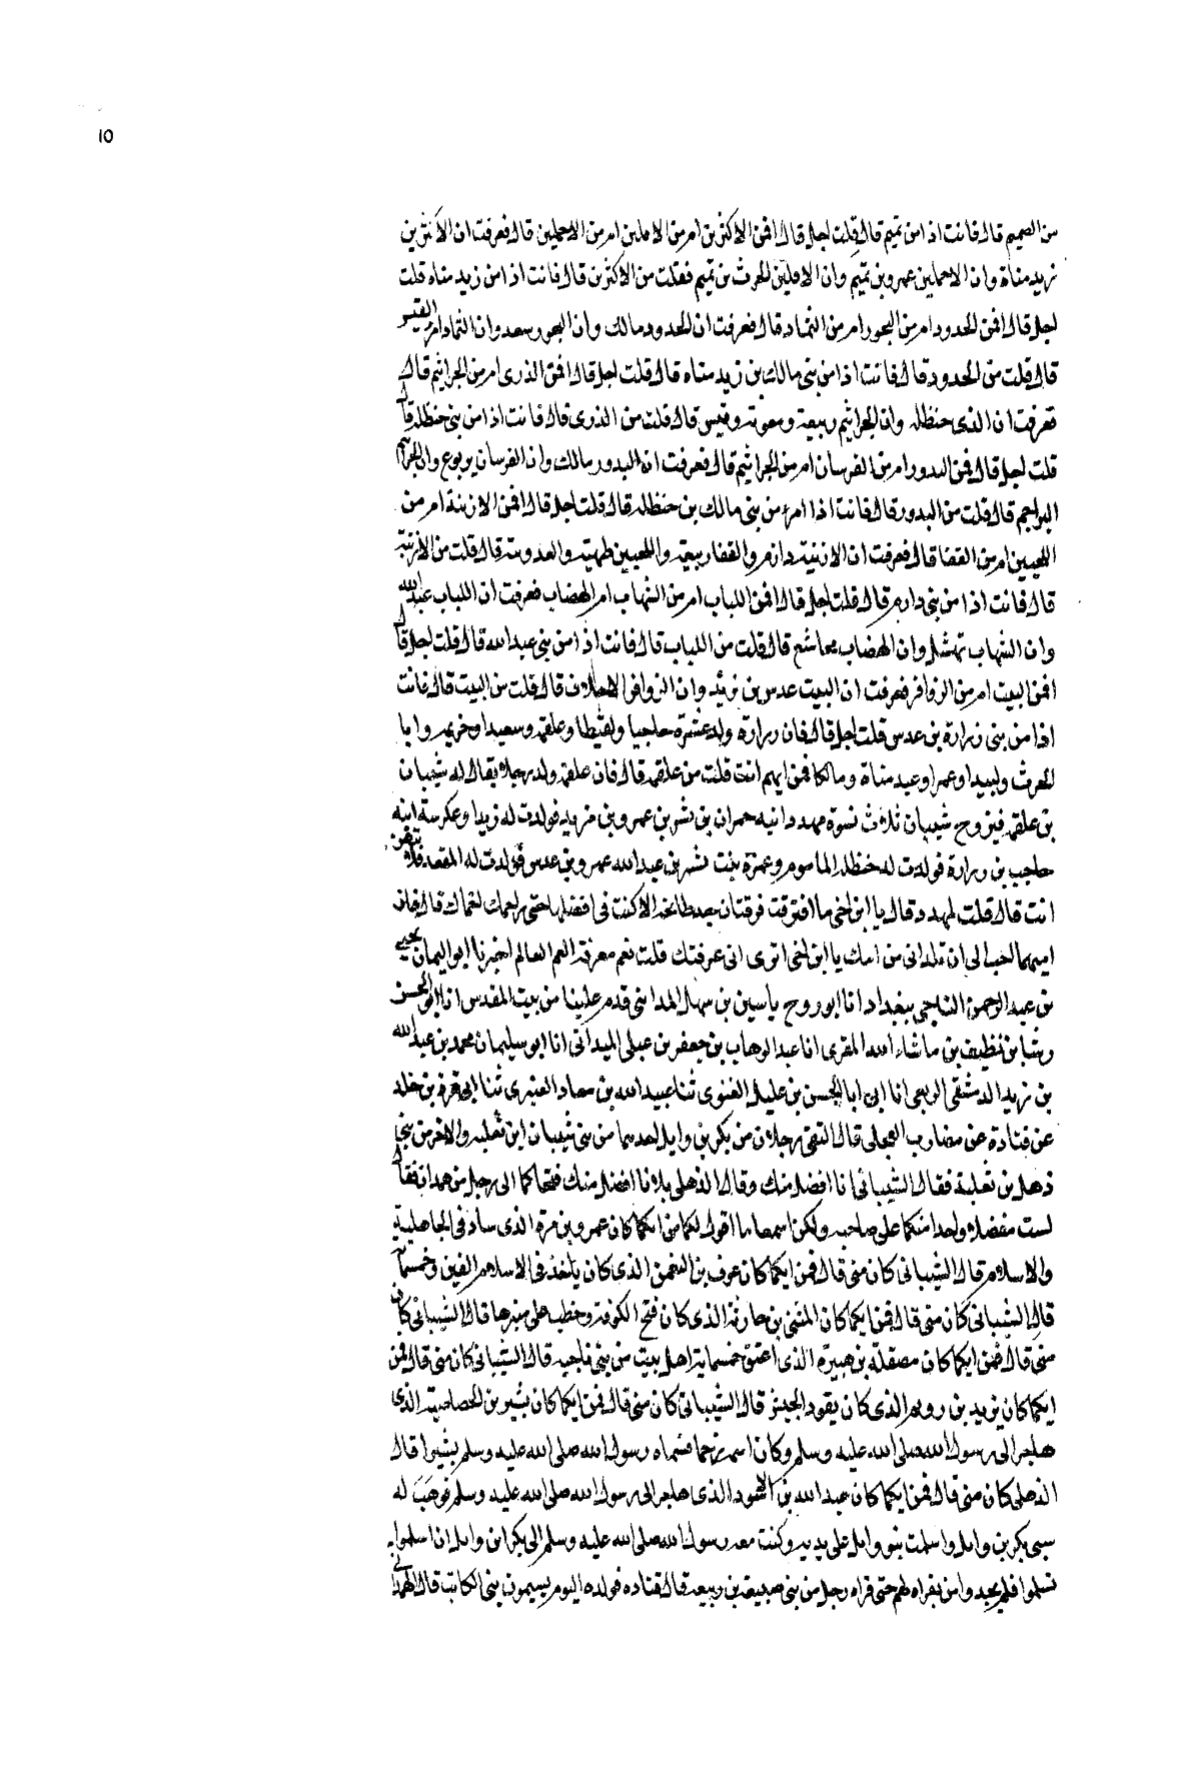 10
من الصميم قال فانت اذا من تميم قال قلت اجل قال افمن الاكثرين ام من الاقلين ام من الاحملين قال فعرفت ان الاكثرين
زيد مناة وان الاحملين عمرو بن تميم وان الاقلين الحرث بن تميم فقلت من الاكثرين قال فانت اذا من زيد مناه قلت
اجل قال افمن الحدود ام من البحور ام من الثماد قال فعرفت ان الحدود مالك وان البحور سعد وان الثماد امر القيس
قال قلت من الحدود قال فانت اذا من بنى مالك بن زيد مناه قال قلت اجل قال افمن الذرى ام من الجراثيم قال
فعرفت ان الذى حنظله وان الجراثيم ربيعة ومعوية وقيس قال قلت من الذرى قال فانت اذا من بنى حنظله قال
قلت اجل قال فمن البدور ام من الفرسان ام من الجراثيم قال فعرفت ان البدور مالك وان الفرسان يربوع وان الجراثيم
البراجم قال قلت من البدور قال فانت اذا امرء من بنى مالك بن حنظله قال قلت اجل قال افمن الارنبة ام من
اللحيين ام من القفا قال فعرفت ان الارنبة دارم والقفا ربيعة واللحيين طهية والعدوية قال قلت من الارنبة
قال فانت اذا من بنى دارم قال قلت اجل قال افمن اللباب ام من الشهاب ام الهضاب فعرفت ان اللباب عبد الله
وان الشهاب نهشل وان الهضاب مجاشع قال قلت من اللباب قال فانت اذا من بنى عبد الله قال قلت اجل قال
افمن البيت ام من الزوافر فعرفت ان البيت عدس بن زيد وان الزوافر الاحلاف قال قلت من البيت قال فانت
اذا من بنى زرارة بن عدس قلت اجل قال فان زرارة ولد عشرة حاجبا ولقيطا وعلقمه وسعيدا وخزيمه و
الحرث ولبيدا وعمرا وعبد مناة ومالكا فمن ايهم انت قلت من علقمه قال فان علقمه ولد رجلا يقال له شيبان
بن علقمه فتزوج شيبان ثلاث نسوة مهدد ابنة حمران بن بشر بن عمرو بن مرثد فولدت له زيدا وعكرسة ابنه
حاجب بن زرارة فولدت له حنظله الماموم وعمرة بنت بشر بن عبد الله عمرو بن عدس فولدت له المقعد فلايتهن
انت قال قلت لمهدد قال يا ابن اخى ما افترقت فرقتان بعد الا كنت فى افضلها حتى زاحمك اخواك قال فان
اميهما احب الى ان تلدانى من امك يا ابن اخى اترى انى عرفتك قلت نعم معرفة العم العالم اخبرنا ابو اليمان يحيى
بن عبد الرحمن التاجى ببغداد انا ابو روح ياسين بن سهل المدائنى قدم علينا من بيت المقدس انا ابو الحسن
رشا بن نظيف بن ما شاء الله المقرى انا عبد الوهاب بن جعفر بن على الميدانى انا ابو سليمان محمد بن عبد الله
بن زيد الدمشقى الربعى انا ابى ابا الحسن بن عليل الغنوى ثنا عبيد الله بن معاذ العنبرى ثنا ابى قرة بن خلد
عن قتادة عن مضارب العجلى قال التقى رجلان من بكر بن وايل احدهما من بنى شيبان ابن ثعلبه والاخر من بنى
ذهل بن ثعلبة فقال الشيبانى انا افضل منك وقال الذهلى بل انا افضل منك فتحاكما الى رجل من همدان فقال
لست مفضلا واحدا منكما على صاحبه ولكن اسمعا ما اقول لكما من ايكما كان عمرو بن مرة الذى ساد فى الجاهلية
والاسلام قال الشيبانى كان منى قال فمن ايكما كان عوف بن النعمن الذى كان ياخذ فى الاسلام الفين وخمسمائه
قال الشيبانى كان منى قال فمن ايكما كان المثنى بن حارثة الذى كان فتح الكوفة وخطب على منبرها قال الشيبانى كان
منى قال فمن ايكما كان مصقلة بن هبيرة الذى اعتق خمسماية اهل بيت من بنى ناجيه قال الشيبانى كان منى قال فمن
ايكما كان يزيد بن رويم الذى كان يقود الجيش قال الشيبانى كان منى قال فمن ايكما كان بشير بن الخصاصية الذى
هاجر الى رسول الله صلى الله عليه وسلم وكان اسمه زحما فسماه رسول الله صلى الله عليه وسلم بشيرا قال
الذهلى كان منى قال فمن ايكما كان عبد الله بن الاسود الذى هاجر الى رسول الله صلى الله عليه وسلم فوهب له
سبى بكر بن وايل واسلمت بنو وايل على يديه وكتب معه رسول الله صلى الله عليه وسلم الى بكر ابن وايل ان اسلموا
تسلموا فلم يجدوا من يقراه لهم حتى قراه رجل من بنى ضبيعة بن ربيعه قال قتاده فولده اليوم يسمون بنى الكاتب قال الهمدانى